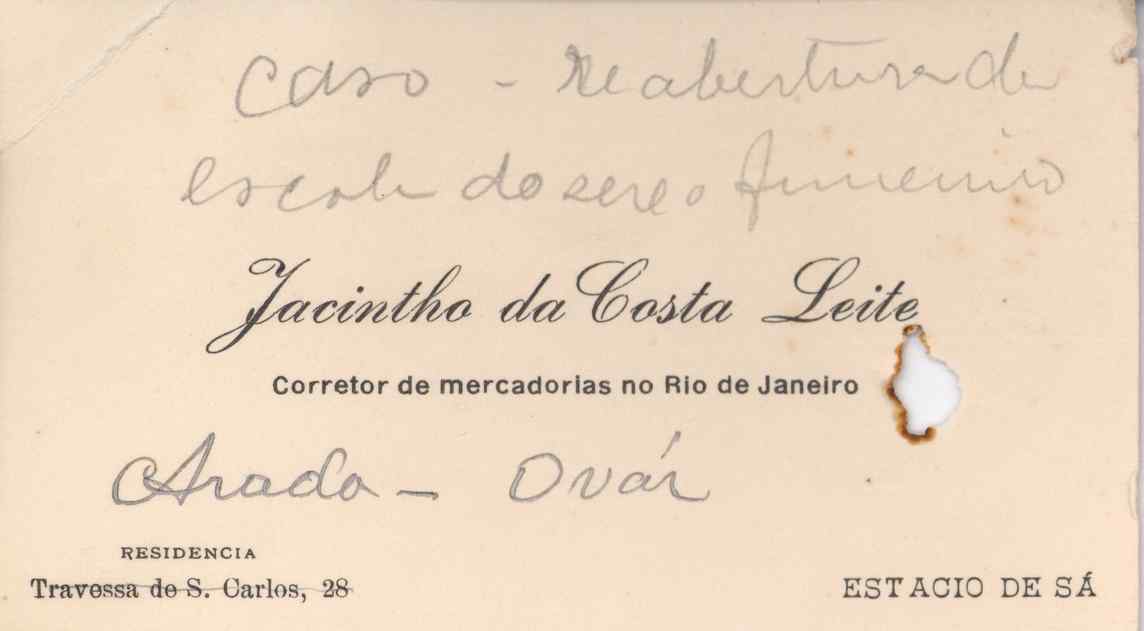 Caso - Reabertura da
escola do sexo feminino
Jacintho da Costa Leite
Corretor de mercadorias no Rio de Janeiro
Arada - Ovár
RESIDENCIA
Travessa de S. Carlos, 28
ESTACIO DE SÁ